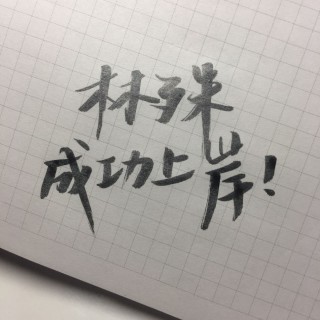 林殊
成功上岸！